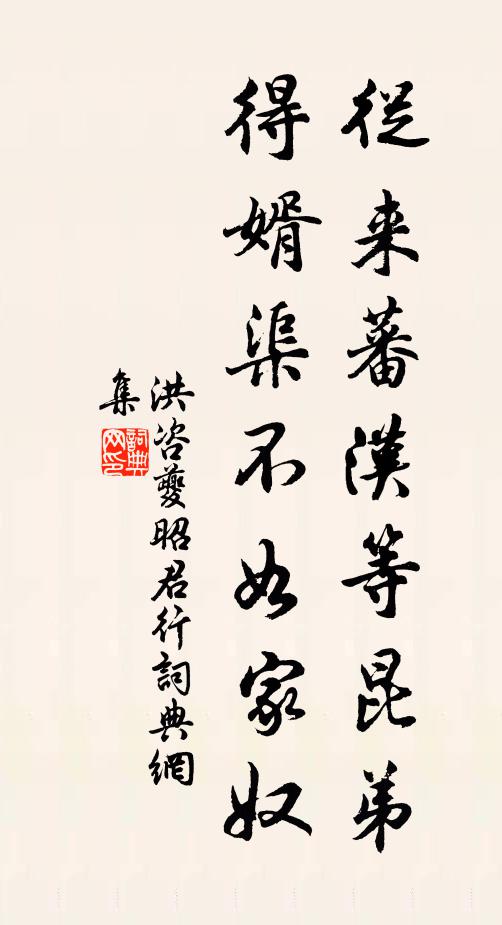 從来蕃漢等昆弟
得婿渠不如家奴
洪咨夔昭君行詞典網
集
詞典网印